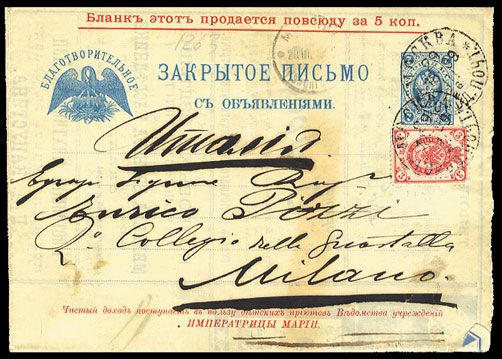 Бланкъ этотъ продается повсюду за 5 коп.
БЛАГОТВОРИТЕЛЬНОЕ
ЗАКРЫТОЕ ПИСЬМО
СЪ ОБЪЯВЛЕНІЯМИ.
МОСКВА
1263
Италія
Enrico Pozzi
Collegio della Guastalla
Milano.
Чистый доходъ поступаетъ въ пользу дѣтскихъ пріютовъ Вѣдомства учрежденій
ИМПЕРАТРИЦЫ МАРІИ.